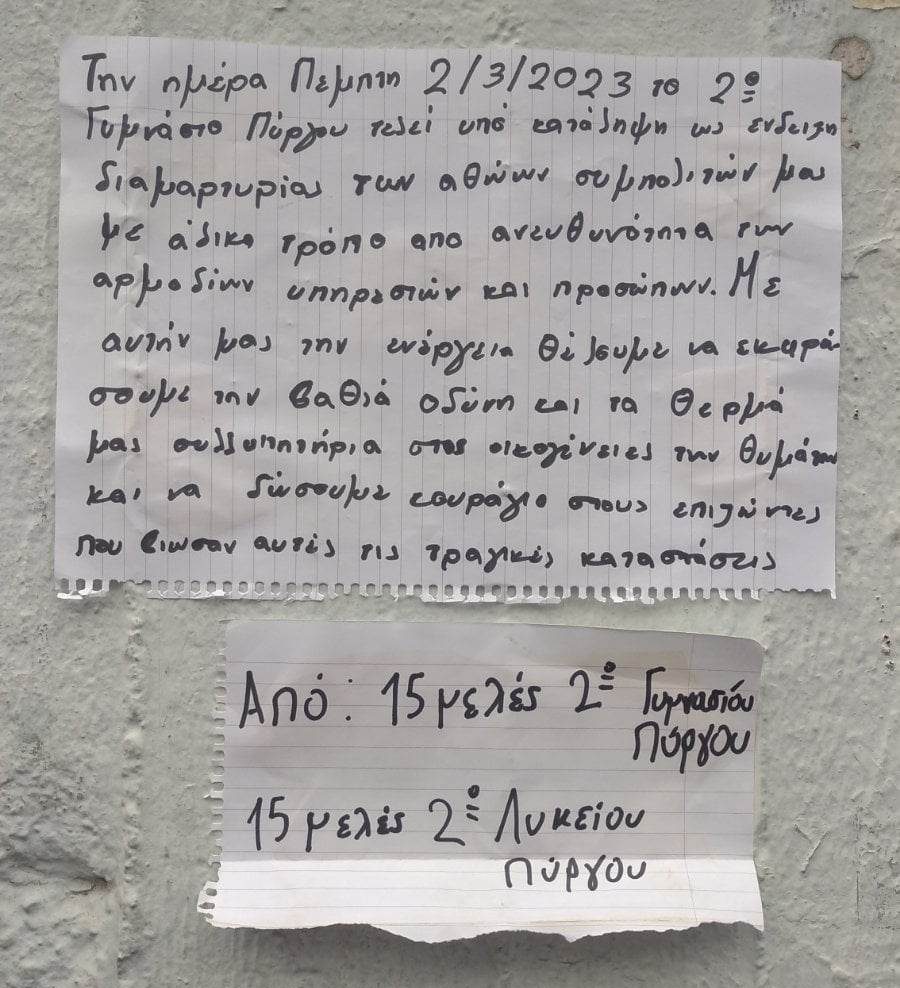 Την ημέρα Πεμπτη 2/3/2023 το 2º
Γυμνάσιο Πύργου τελεί υπό κατάληψη ως ένδειξη
διαμαρτυρίας των αθώων συμπολιτών μας
με άδικο τρόπο απο ανευθυνότητα των
αρμοδίων υπηρεσιών και προσώπων. Με
αυτήν μας την ενέργεια θέλουμε να εκφρά-
σουμε την βαθιά οδύνη και τα θερμά
μας συλλυπητήρια στις οικογένειες των θυμάτων
και να δώσουμε κουράγιο στους επιζώντες
που βιωσαν αυτές τις τραγικές καταστάσεις
Από: 15μελές 2º Γυμνασίου
Πύργου
15μελές 2º Λυκείου
Πύργου